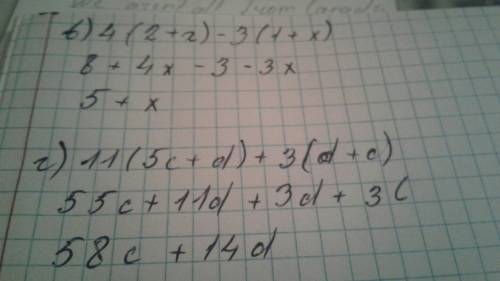 в) 4(2+x)-3(1+x)
8+4x-3-3x
5+x
г) 11(5c+d)+3(d+c)
55c+11d+3d+3c
58c+14d